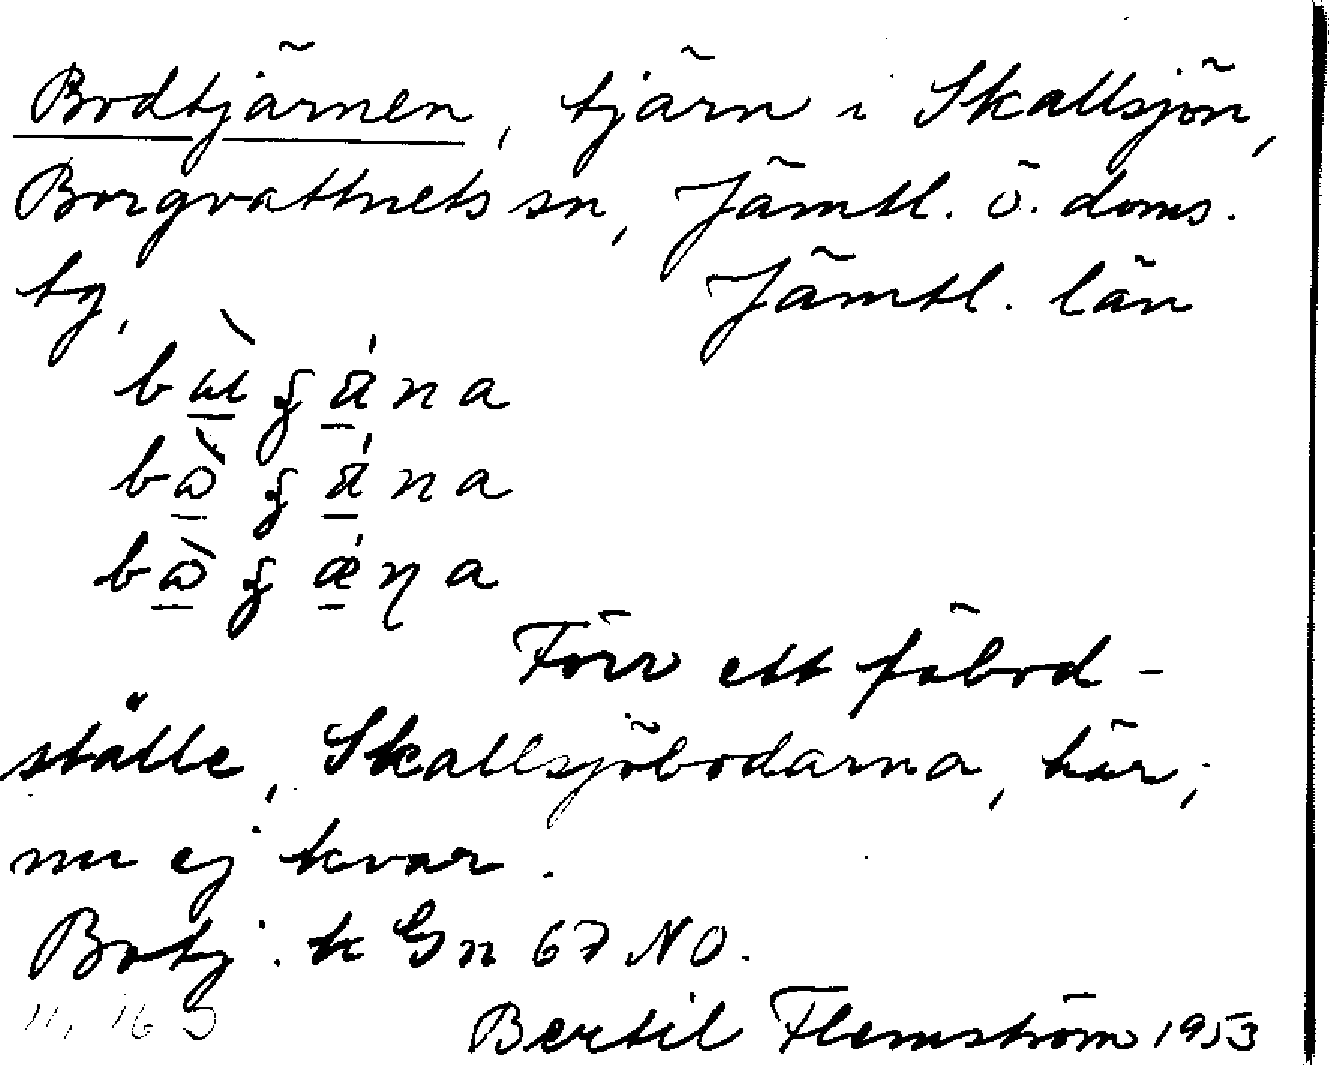 Bodtjärnen, tjärn i Skallsjön,
Borgvattnets sn, Jämtl. ö. doms.
tg, Jämtl. län
Förr ett fäbod-
ställe, Skallsjöbodarna, här;
nu ej kvar.
Botj. k Gn 67 NO.
Bertil Flemström 1953